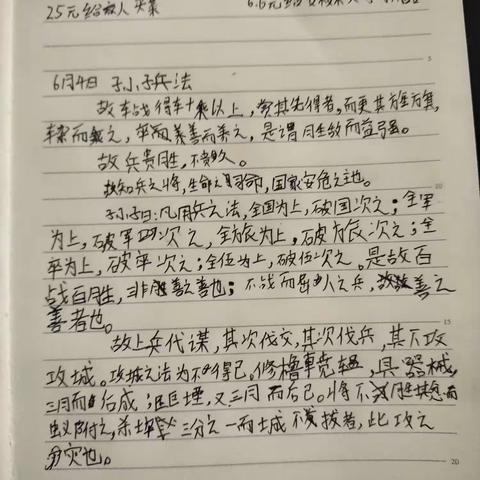 25元给放人买菜
6.6元给
6月4日 孙小子兵法
故车战得车十乘以上,赏其先得者,而更其旌旗,
车杂而乘之,卒而善而养之,是谓胜敌而益强。
故兵贵胜,不贵久。
故知兵之将,生命之司命,国家安危之主也。
孙子曰:凡用兵之法,全国为上,破国次之;全军
为上,破军次之,全旅为上,破旅次之;全
卒为上,破卒次之;全伍为上,破伍次之。是故百
战百胜,非善之善也;不战而屈人之兵,善之
善者也。
故上兵伐谋,其次伐交,其次伐兵,其下攻
攻城。攻城之法为不得已。修橹,具器械,
三月而后成;距堙,又三月而后已。将不胜其忿而
蚁附之,杀士三分之一而城不拔者,此攻之
灾也。
5
10
15
20